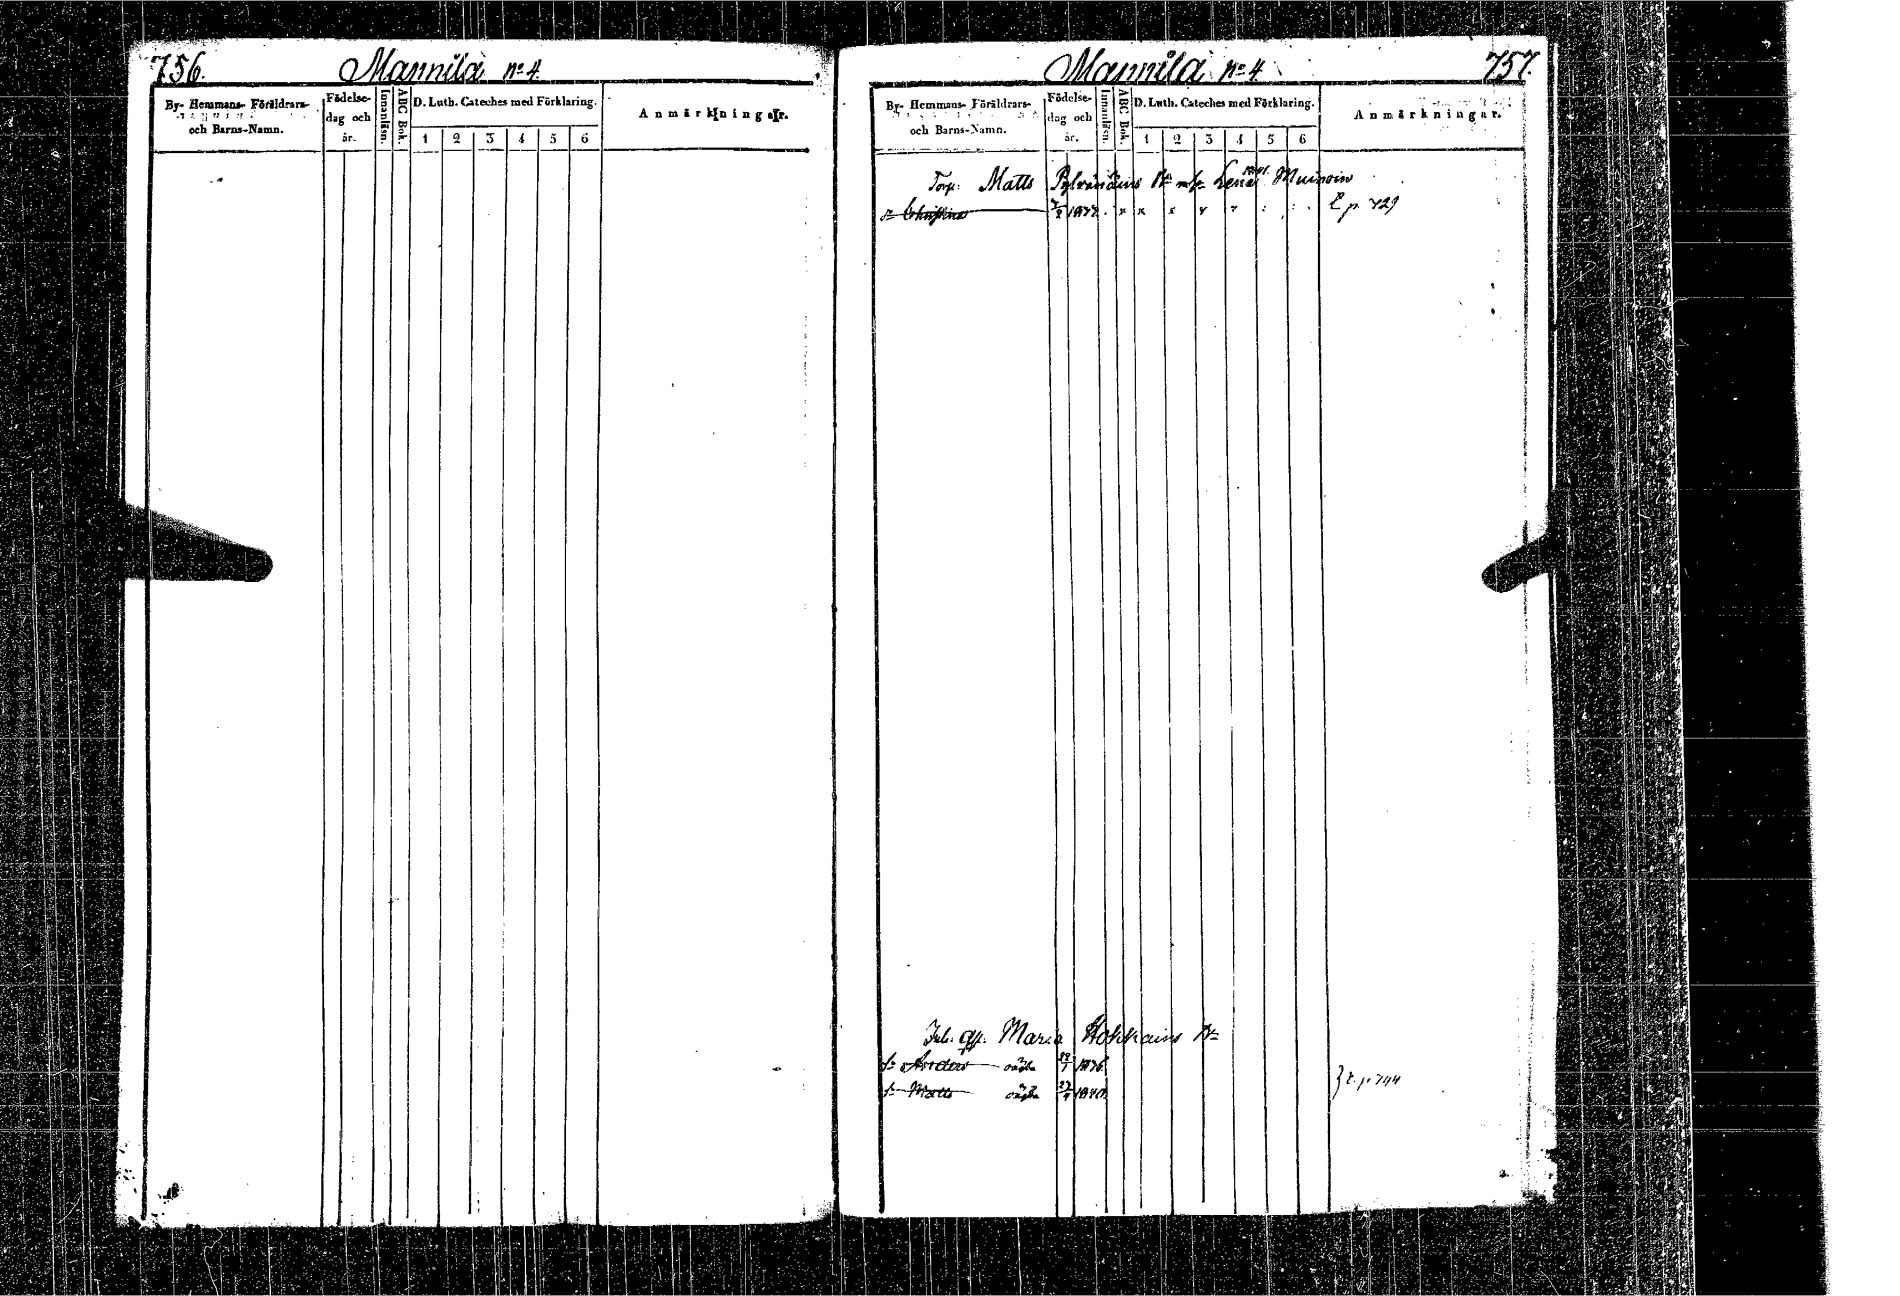 756. Mannila no 4.
By- Hemmans- Föräldrars- och Barns-Namn.
Födelse- dag och år.
Innanläsn.
ABC Bok.
D. Luth. Cateches med Förklaring.
1 2 3 4 5 6
Anmärkningar.
Mannila no 4. 757.
By- Hemmans- Föräldrars- och Barns-Namn.
Födelse- dag och år.
Innanläsn.
ABC Bok.
D. Luth. Cateches med Förklaring.
1 2 3 4 5 6
Anmärkningar.
Torp. Matts Pylvänäins Lena Muinoin
Christina p. 729
Maria Hokkains
Anders oägta
Matts oägta 27/4 1840
p. 744